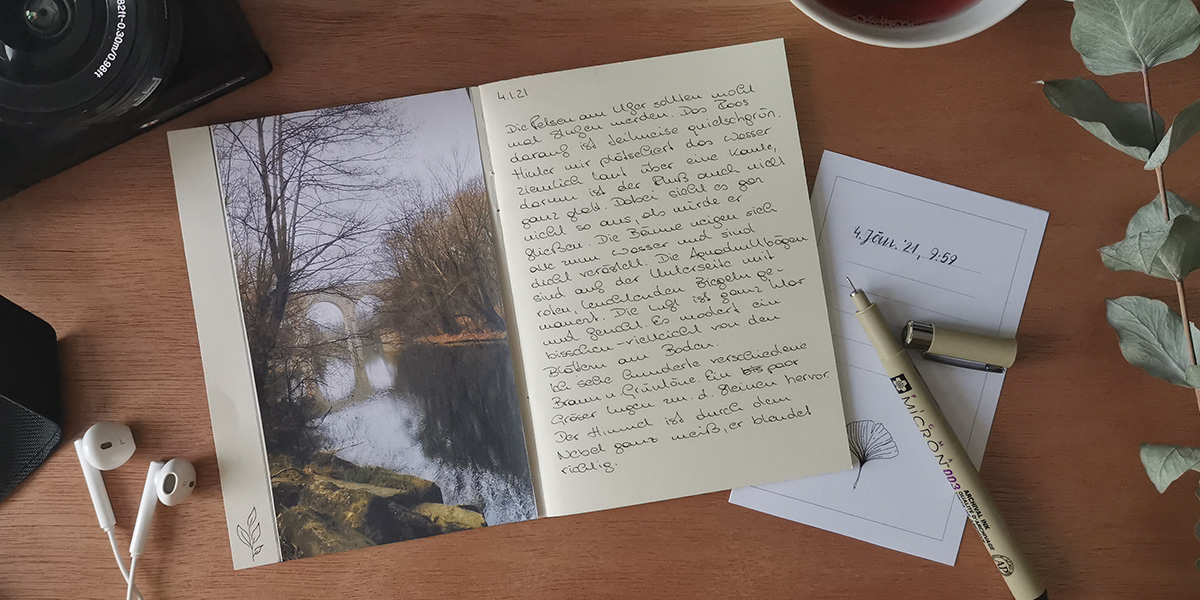 82ft-0.30m/0.98ft
4.1.21
Die Felsen am Ufer sollten wohl
mal Stufen werden. Das Moos
darauf ist teilweise quietschgrün.
Hinter mir plätschert das Wasser
ziemlich laut über eine Kante,
darum ist der Fluß auch nicht
ganz glatt. Dabei sieht es gar
nicht so aus, als würde er
fließen. Die Bäume neigen sich
alle zum Wasser und sind
dicht verästelt. Die Aquäduktbögen
sind auf der Unterseite mit
roten, leuchtenden Ziegeln ge-
mauert. Die Luft ist ganz klar
und feucht. Es modert ein
bisschen - vielleicht von den
Blättern am Boden.
Ich sehe hunderte verschiedene
Braun u. Grüntöne. Ein bis paar
Gräser lugen zw. d. Steinen hervor.
Der Himmel ist durch den
Nebel ganz weiß, er blendet
richtig.
4. Jän. '21, 9:59
SAKURA
PIGMA
MICRON
003
ARCHIVAL INK
QUALITÉ D'ARCHIVAGE
AP